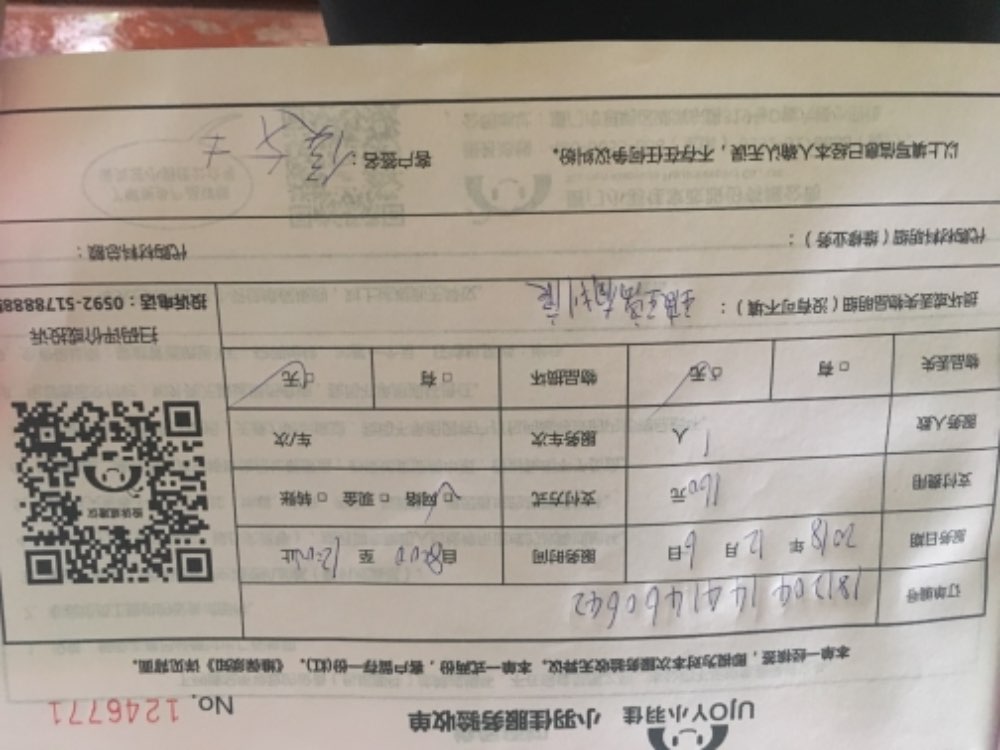 UJOY小羽佳 小羽佳服务验收单 No. 1246771
本单一经接签，即视为对本次服务验收无异议。本单一式两份，客户留存一份(红)。《维保须知》详见背面。
订单编号 1812041441460642
服务日期 2018年12月6日 服务时间 自8:00至12:00止
支付费用 160元 支付方式 网络 现金 转账
服务人数 1人 服务车次 车/次
物品丢失 有 无 物品损坏 有 无
给诶喔建议
扫码评价或投诉
投诉电话：0592-5178888
损坏或丢失物品明细（没有可不填）：
代购材料明细（维修业务）： 代购材料总额：
以上填写信息已经本人确认无误，不存在任何争议纠纷。 客户签名：